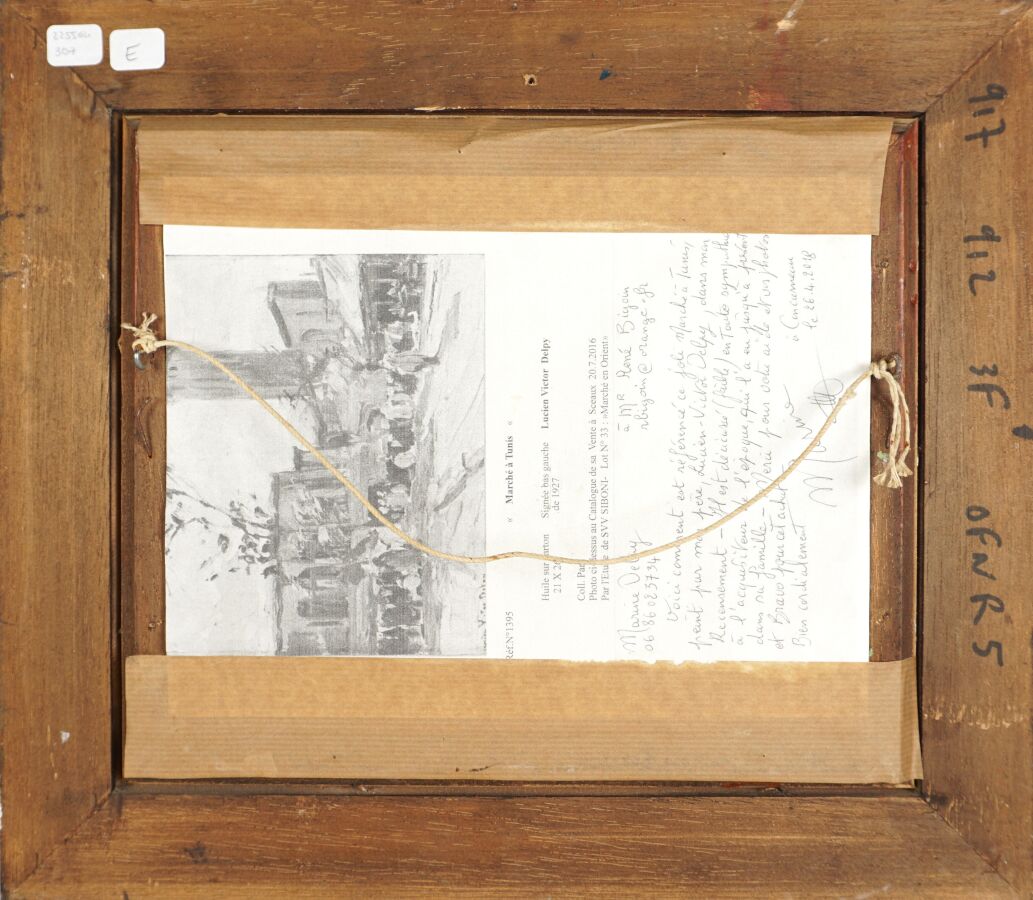 225504
307
E
917 912 3F 7
OFNR5
Réf.N°1395 « Marché à Tunis «
Huile sur carton Signée bas gauche Lucien Victor Delpy
21 X 26 de 1927
Coll. Part
Photo ci-dessus au Catalogue de sa Vente à Sceaux 20.7.2016
Par l'Etude de SVV SIBONI- Lot N° 33 : «Marché en Orient»
Marine Delpy à Mr René Bigoin
0686083734 rbigoin@orange.fr
Voici comment est référencé ce joli Marché à Tunis,
peint par mon père, Lucien-Victor Delpy, dans mon
Recensement - Il est dédicacé (faible) en toute sympathie
à l'acquéreur de l'époque, qui l'a eu jusqu'à présent
dans sa famille - Merci pour votre aide et vos photos
et Bravo pour cet achat
Bien cordialement
Concarneau
le 26.4.2018